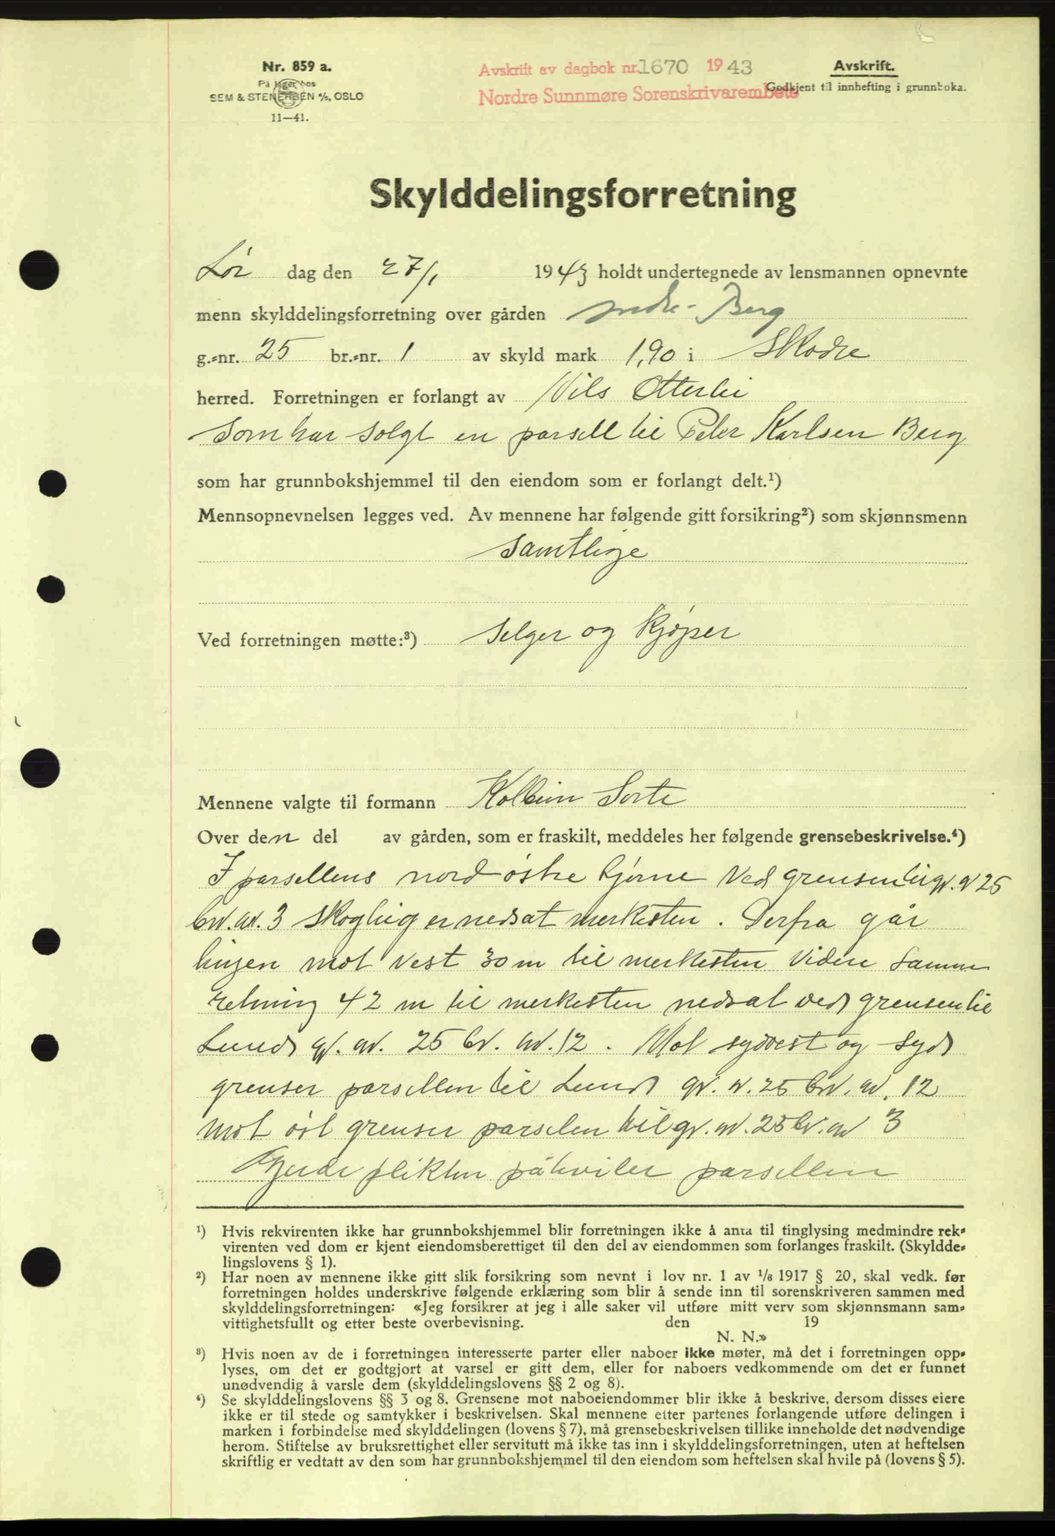 Nr. 859 a.
På lager hos
SEM & STENERSEN A/S, OSLO
11—41.
Avskrift av dagbok nr. 1670 1943
Nordre Sunnmøre Sorenskrivarembete
Avskrift.
Godkjent til innhefting i grunnboka.
Skylddelingsforretning
Lør dag den 27/1 1943 holdt undertegnede av lensmannen opnevnte
menn skylddelingsforretning over gården Indre-Berg
g.-nr. 25 br.-nr. 1 av skyld mark 1,90 i Skodje
herred. Forretningen er forlangt av Nils Otterlei
Som har solgt en parsell til Peter Karlsen Berg
som har grunnbokshjemmel til den eiendom som er forlangt delt.¹)
Mennsopnevnelsen legges ved. Av mennene har følgende gitt forsikring²) som skjønnsmenn
samtlige
Ved forretningen møtte:³) Selger og kjøper
Mennene valgte til formann Kolbein Sorte
Over den del av gården, som er fraskilt, meddeles her følgende grensebeskrivelse.⁴)
I parsellens nord østre hjørne ved grensen til gr. nr 25
br. nr. 3 Skoglug er nedsat merkesten. Derfra går
linjen mot vest 30 m til merkesten videre samme
retning 42 m til merkesten nedsat ved grensen til
Lund gr. nr. 25 br. nr. 12. Mot sydvest og syd
grenser parsellen til Lund gr. nr. 25 br. nr. 12
mot øst grenser parsellen til gr. nr. 25 br. nr 3
Gjerde plikten påhviler parsellen
¹) Hvis rekvirenten ikke har grunnbokshjemmel blir forretningen ikke å anta til tinglysing medmindre rek-
virenten ved dom er kjent eiendomsberettiget til den del av eiendommen som forlanges fraskilt. (Skyldde-
lingslovens § 1).
²) Har noen av mennene ikke gitt slik forsikring som nevnt i lov nr. 1 av 1/8 1917 § 20, skal vedk. før
forretningen holdes underskrive følgende erklæring som blir å sende inn til sorenskriveren sammen med
skylddelingsforretningen: «Jeg forsikrer at jeg i alle saker vil utføre mitt verv som skjønnsmann sam-
vittighetsfullt og etter beste overbevisning. den 19
N. N.»
³) Hvis noen av de i forretningen interesserte parter eller naboer ikke møter, må det i forretningen opp-
lyses, om det er godtgjort at varsel er gitt dem, eller for naboers vedkommende om det er funnet
unødvendig å varsle dem (skylddelingslovens §§ 2 og 8).
⁴) Se skylddelingslovens §§ 3 og 8. Grensene mot naboeiendommer blir ikke å beskrive, dersom disses eiere
ikke er til stede og samtykker i beskrivelsen. Skal mennene etter partenes forlangende utføre delingen i
marken i forbindelse med skylddelingen (lovens § 7), må grensebeskrivelsen tillike inneholde det nødvendige
herom. Stiftelse av bruksrettighet eller servitutt må ikke tas inn i skylddelingsforretningen, uten at heftelsen
skriftlig er vedtatt av den som har grunnbokshjemmel til den eiendom som heftelsen skal hvile på (lovens § 5).